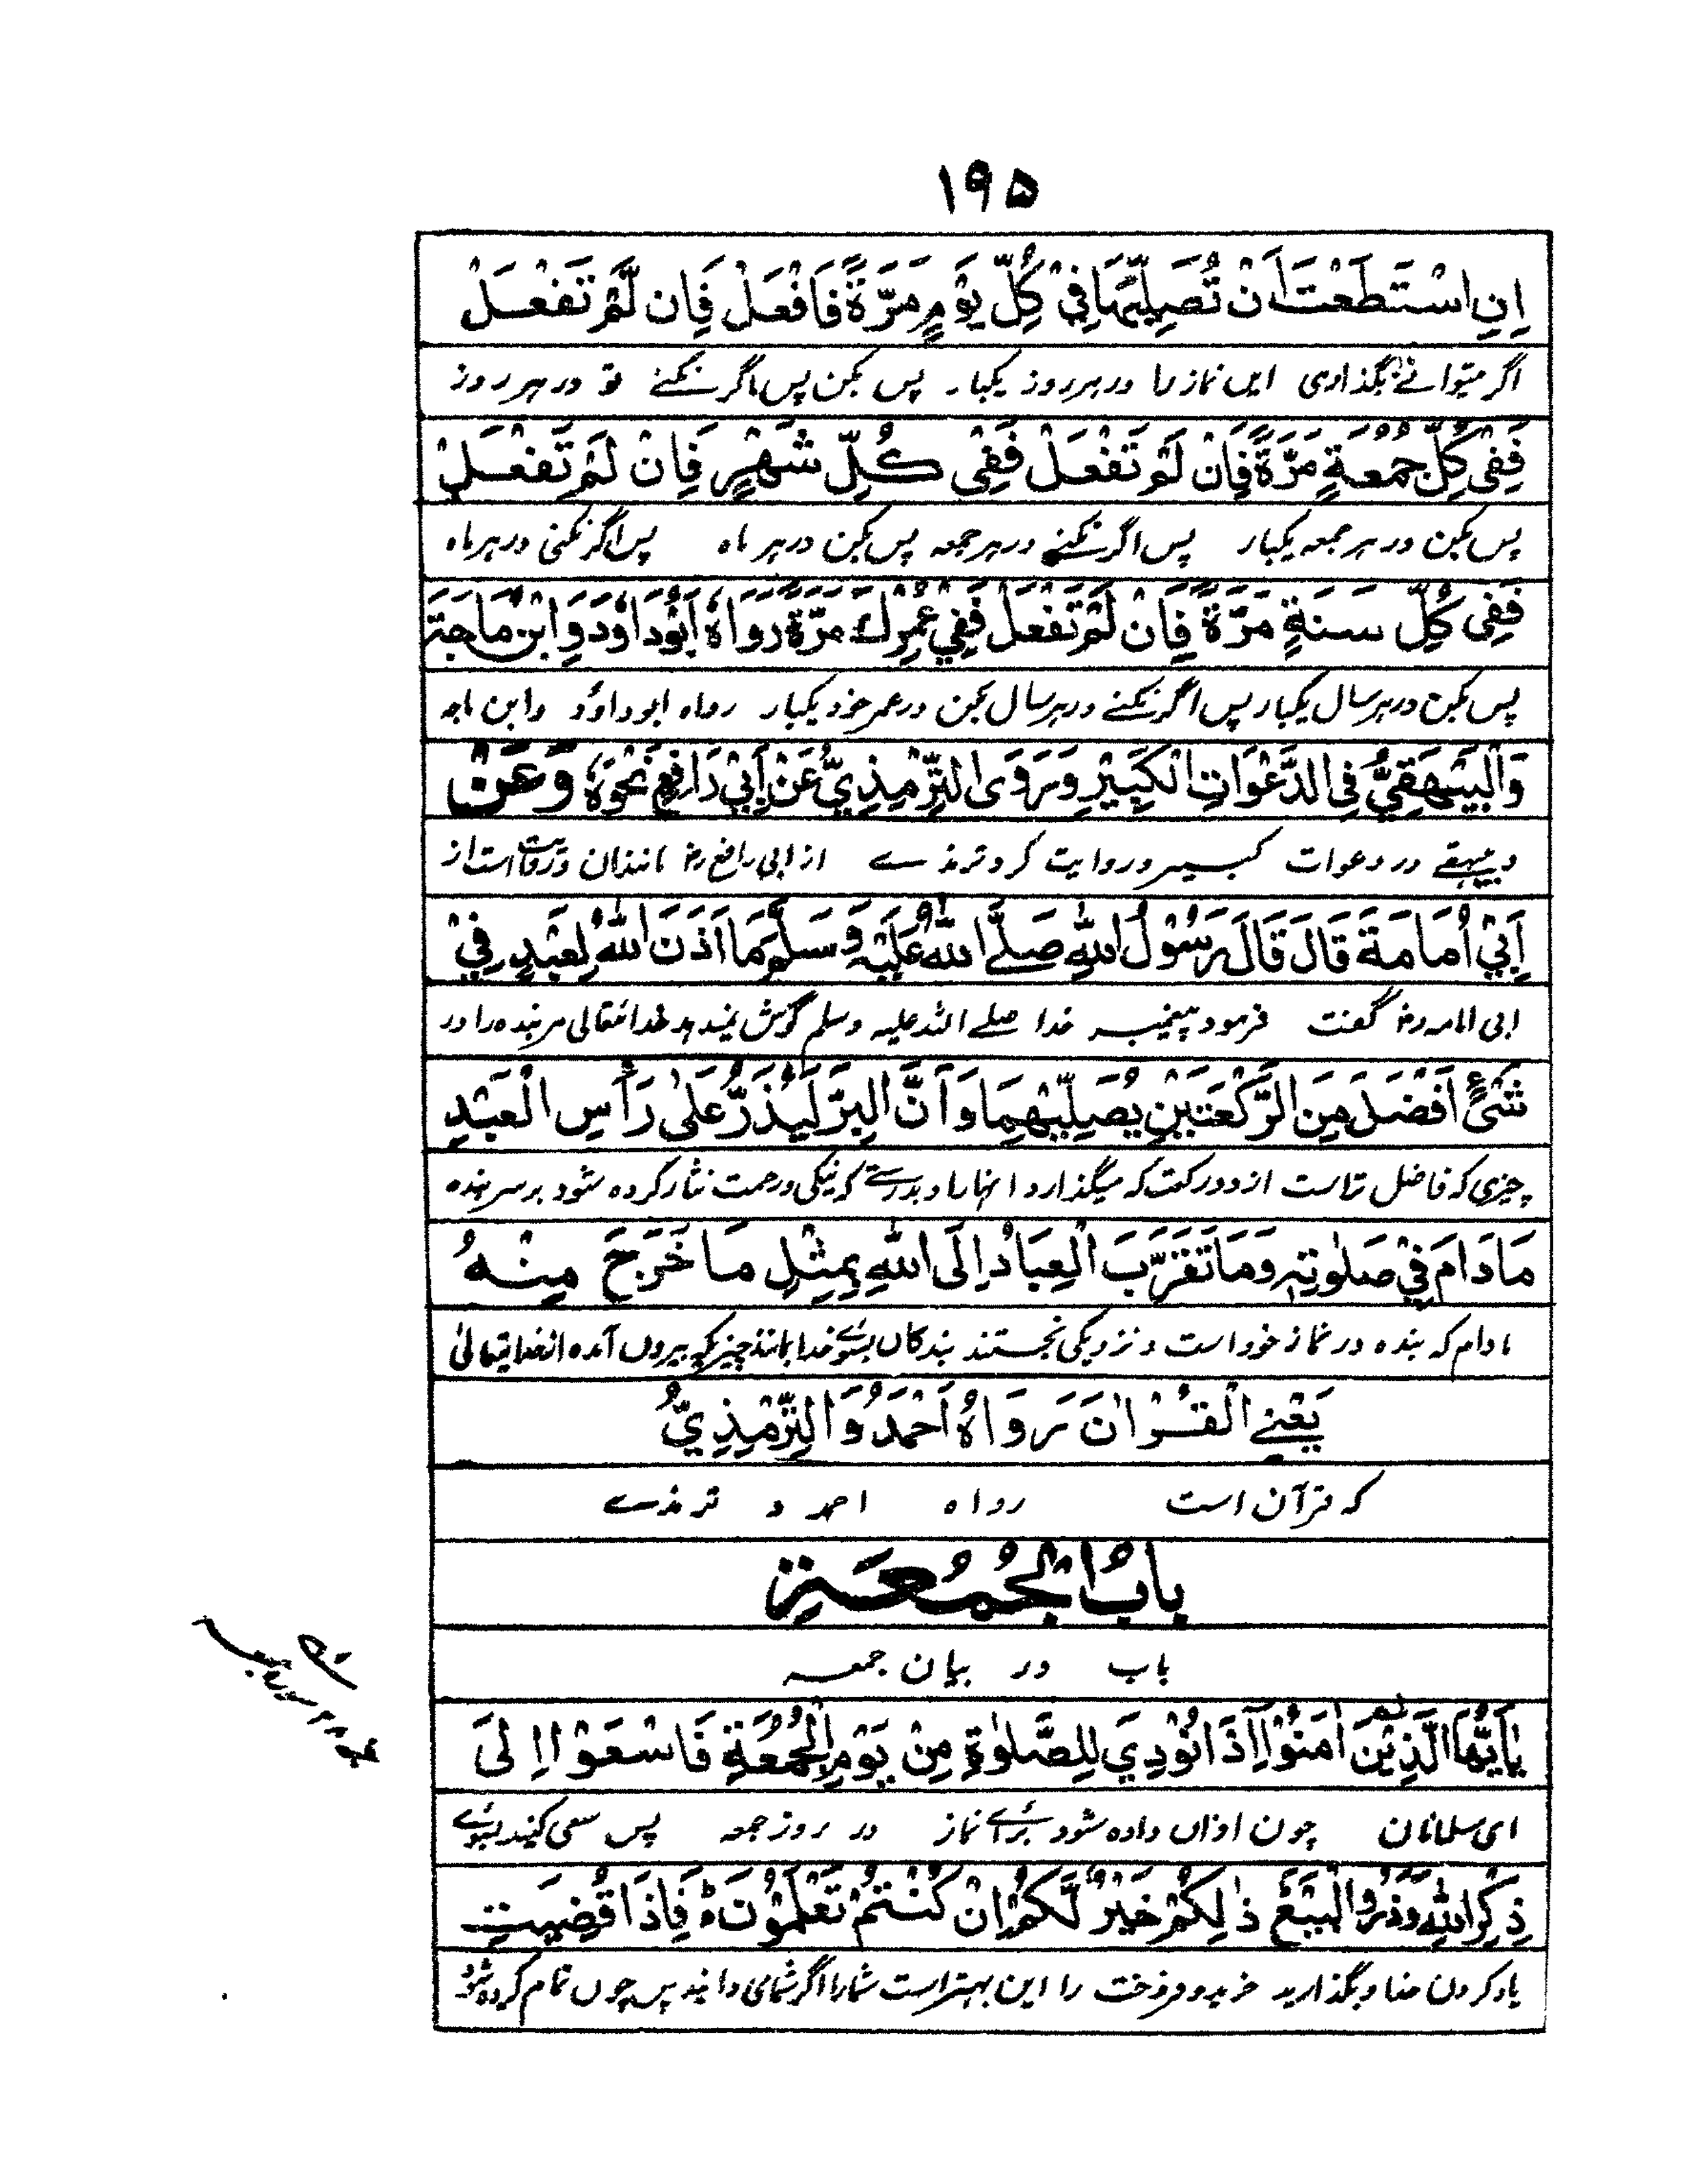 ۱۹۵
اِنِ اسْتَطَعْتَ اَنْ تُصَلِّيَهَا فِيْ كُلِّ يَوْمٍ مَرَّةً فَافْعَلْ فَاِن لَّمْ تَفْعَلْ
اگر میتوانے بگذاری ایں نماز را در ہر روز یکبار پس بکن پس اگر نکنے تو در ہر روز
فَفِیْ كُلِّ جُمُعَةٍ مَرَّةً فَاِن لَمْ تَفْعَلْ فَفِی كُلِّ شَهْرٍ فَاِنْ لَمْ تَفْعَلْ
پس بکن در ہر جمعہ یکبار پس اگر نکنے در ہر جمعہ پس بکن در ہر ماہ پس اگر نکنی در ہر ماہ
فَفِی كُلِّ سَنَةٍ مَرَّةً فَاِنْ لَمْ تَفْعَلْ فَفِيْ عُمْرِكَ مَرَّةً رَوَاهُ اَبُوْدَاوُدَ وَابْنُ مَاجَةَ
پس بکن در ہر سال یکبار پس اگر نکنے در ہر سال بکن در عمر خود یکبار رواہ ابوداؤد وابن ماجہ
وَالْبَيْهَقِيُّ فِی الدَّعْوَاتِ الْكَبِيْرِ وَرَوَی التِّرْمِذِيُّ عَنْ اَبِيْ رَافِعٍ نَحْوَهٗ وَعَنْ
و بیہقے در دعوات کبیر و روایت کرد ترمذے از ابی رافع رض مانند آن و روایت است از
اَبِيْ اُمَامَةَ قَالَ قَالَ رَسُوْلُ اللّٰهِ صَلَّے اللّٰهُ عَلَيْهِ وَسَلَّمَ مَا اَذَنَ اللّٰهُ لِعَبْدٍ فِيْ
ابی امامہ رض گفت فرمود پیغمبر خدا صلے اللہ علیہ وسلم گوش نمیدہد خدا تعالی مر بندہ را در
شَیْئٍ اَفْضَلَ مِنَ الرَّكْعَتَيْنِ يُصَلِّيْهِمَا وَاَنَّ الْبِرَّ لَيُذَرُّ عَلٰی رَأْسِ الْعَبْدِ
چیزی کہ فاضل تر است از دو رکعت کہ میگذارد انہا را و بدرستے کہ نیکی و رحمت نثار کردہ شود بر سر بندہ
مَادَامَ فِيْ صَلٰوتِهٖ وَمَا تَقَرَّبَ الْعِبَادُ اِلَی اللّٰهِ بِمِثْلِ مَا خَرَجَ مِنْهُ
مادام کہ بندہ در نماز خود است و نزدیکی نجستند بندگاں بسوئے خدا بمانند چیزیکہ بیروں آمدہ از خدا تعالیٰ
يَعْنِے الْقُرْاٰنَ رَوَاهُ اَحْمَدُ وَالتِّرْمِذِيُّ
کہ قرآن است رواہ احمد و ترمذے
بَابُ الْجُمُعَةِ
باب در بیان جمعہ
يٰاَيُّهَا الَّذِيْنَ اٰمَنُوْا اِذَا نُوْدِيَ لِلصَّلٰوةِ مِنْ يَوْمِ الْجُمُعَةِ فَاسْعَوْا اِلٰیَ
ای مسلمانان چون اذاں دادہ شود برائے نماز در روز جمعہ پس سعی کنید بسوئے
ذِكْرِ اللّٰهِ وَذَرُوا الْبَيْعَ ذٰلِكُمْ خَيْرٌ لَّكُمْ اِنْ كُنْتُمْ تَعْلَمُوْنَ ۝ فَاِذَا قُضِيَتِ
یاد کردن خدا و بگذارید خرید و فروخت را این بہتر است شمارا اگر شما می دانید پس چوں تمام کردہ شود